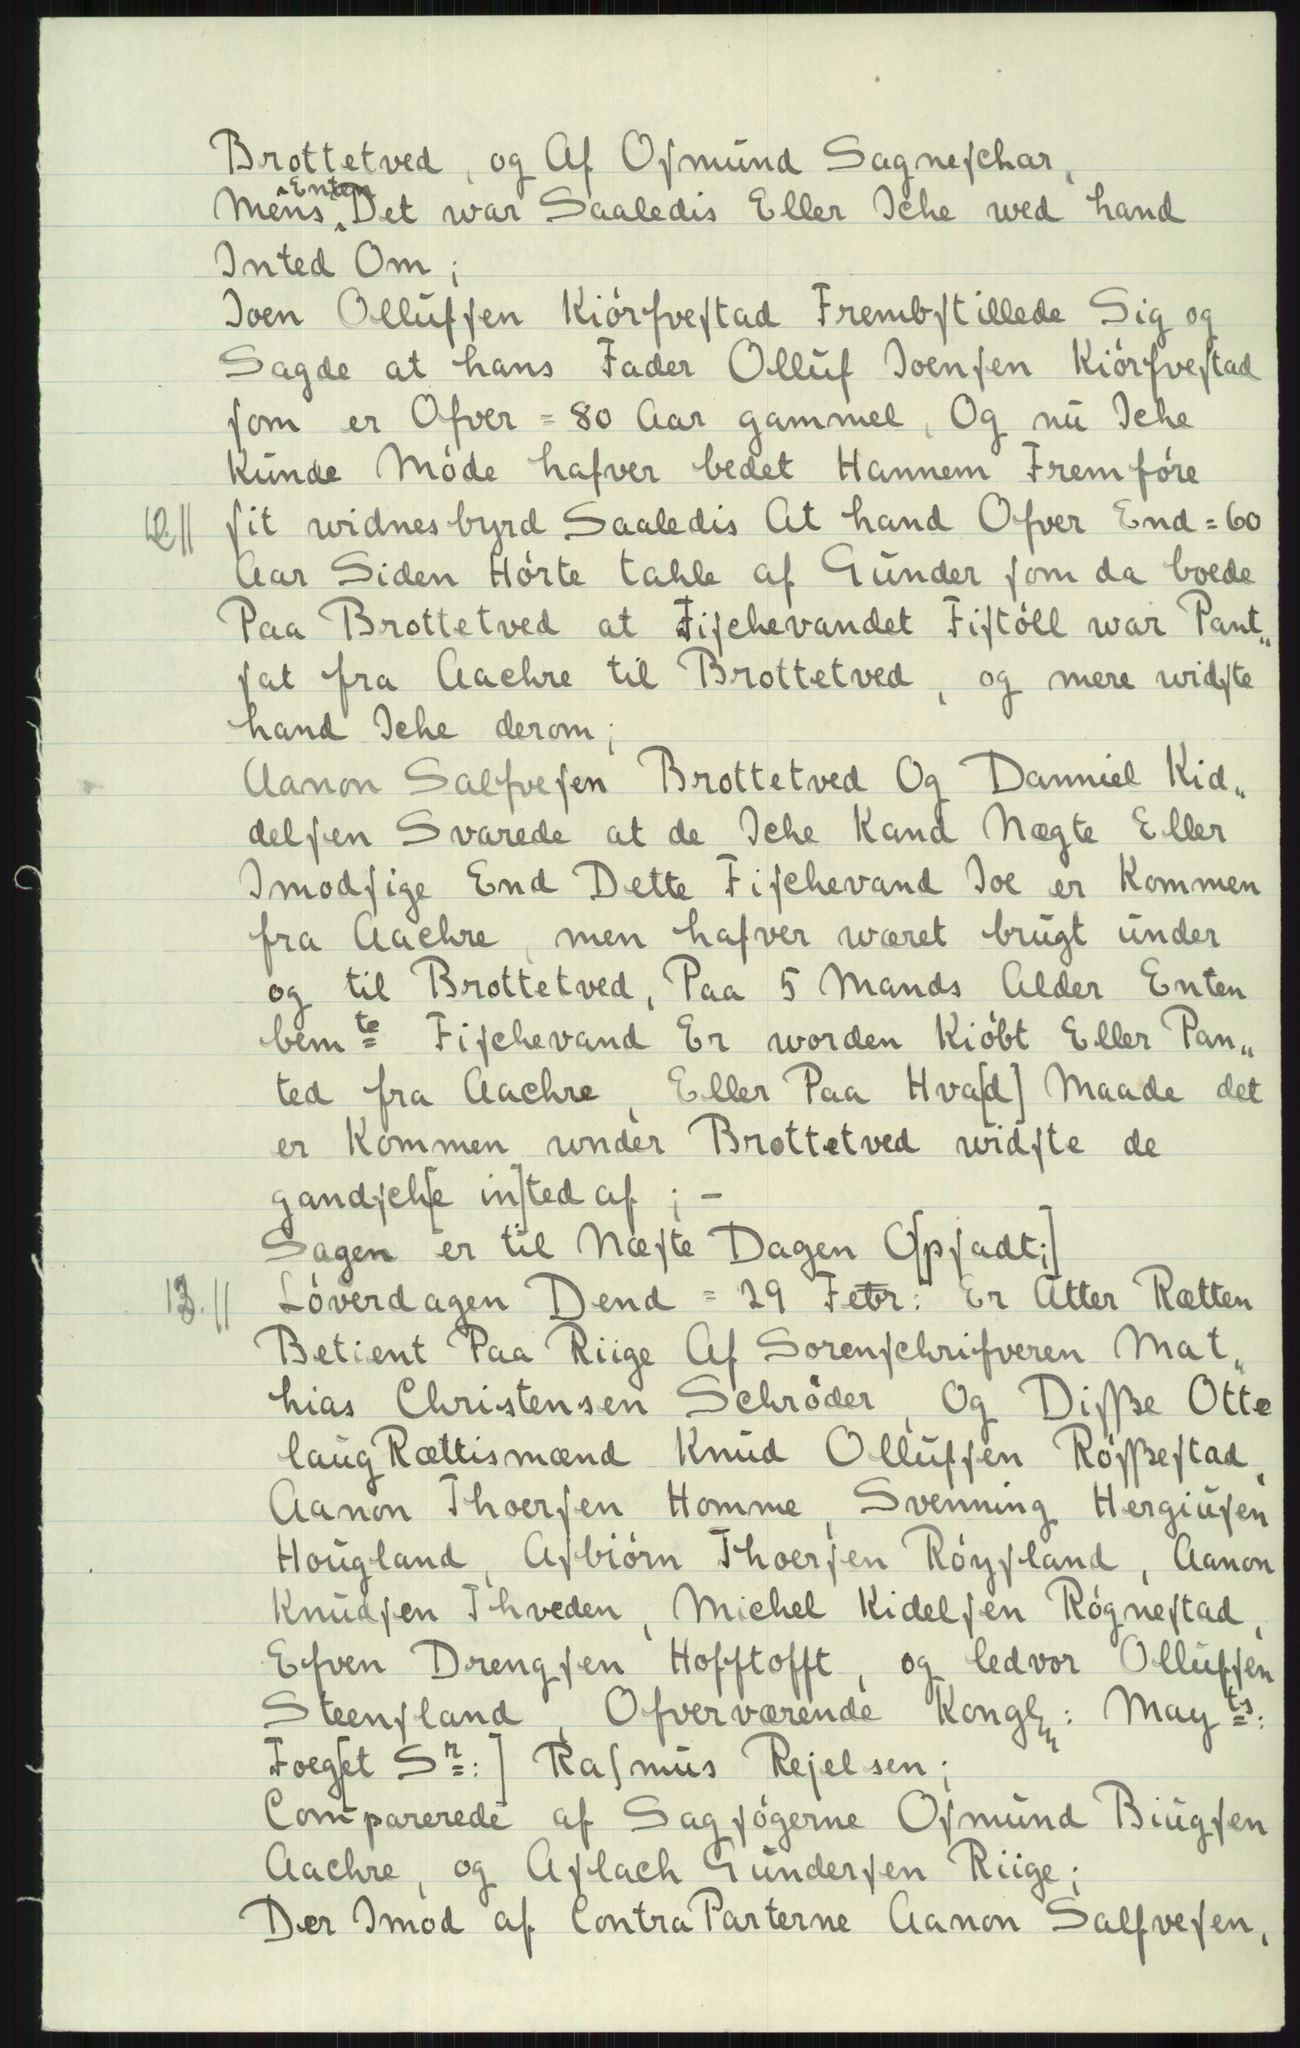 Brottetved, og Af Osmund Sagneschar,
Mens Enten Det war Saaledis Eller Iche wed hand
Inted Om;
Joen Ollufsen Kiórfvestad Frembstillede Sig og
Sagde at hans Fader Olluf Joensen Kiórfvestad
som er Ofver = 80 Aar gammel, Og nu Iche
Kunde Móde hafver bedet Hannem Fremfóre
12.// sit widnesbyrd Saaledis At hand Ofver End = 60
Aar Siden Hórte tahle af Gunder som da boede
Paa Brottetved at Fischevandet Fistóll war Pant„
sat fra Aachre til Brottetved, og mere widste
hand Iche derom;
Aanon Salfvesen Brottetved Og Danniel Kid„
delsen Svarede at de Iche Kand Nægte Eller
Imodsige End Dette Fischevand Joe er Kommen
fra Aachre, men hafver wæret brugt under
og til Brottetved, Paa 5 Mands Alder Enten
bemte Fischevand Er worden Kióbt Eller Pan„
ted fra Aachre, Eller Paa Hva[d] Maade det
er Kommen under Brottetved widste de
gandsch[e in]ted af ; –
Sagen er til Næste Dagen O[psadt;]
13.// Lóverdagen Dend = 29 Febr: Er Atter Rætten
Betient Paa Riige Af Sorenschrifveren Mat„
hias Christensen Schröder, Og Disße Otte
laugRættismænd Knud Ollufsen Rósßestad,
Aanon Thoersen Homme, Svenning Hergiusen
Hougland, Asbiórn Thoersen Róysland, Aanon
Knudsen Thveden, Michel Kidelsen Rógnestad,
Efven Drengsen Hofftofft, og ledvor Ollufsen
Steensland, Ofverværende Kongl: Mayts:
Foeg[et Sr:] Rasmus Rejelsen;
Comparerede af Sagsógerne Osmund Biugsen
Aachre, og Aslach Gundersen Riige;
Der Imod af ContraParterne Aanon Salfvesen,